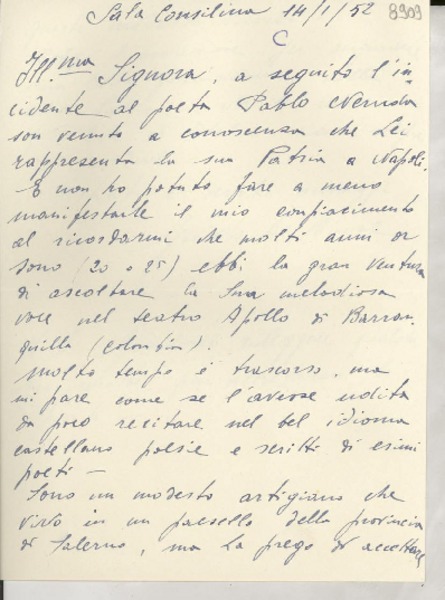 Sala Consilina 14/1/52
8909
C
Ill.ma Signora, a seguito l'in-
cidente al poeta Pablo Neruda
son venuto a conoscenza che Lei
rappresenta la sua Patria a Napoli.
E non ho potuto fare a meno
manifestarle il mio compiacimento
al ricordarmi che molti anni or
sono (20 o 25) ebbi la gran ventura
di ascoltare la Sua melodiosa
voce nel teatro Apollo di Barran-
quilla (Colombia).
Molto tempo è trascorso, ma
mi pare come se l'avesse udita
da poco recitare nel bel idioma
castellano poesie e scritti di esimi
poeti —
Sono un modesto artigiano che
vivo in un paesello della provincia
di Salerno, ma La prego di accettare